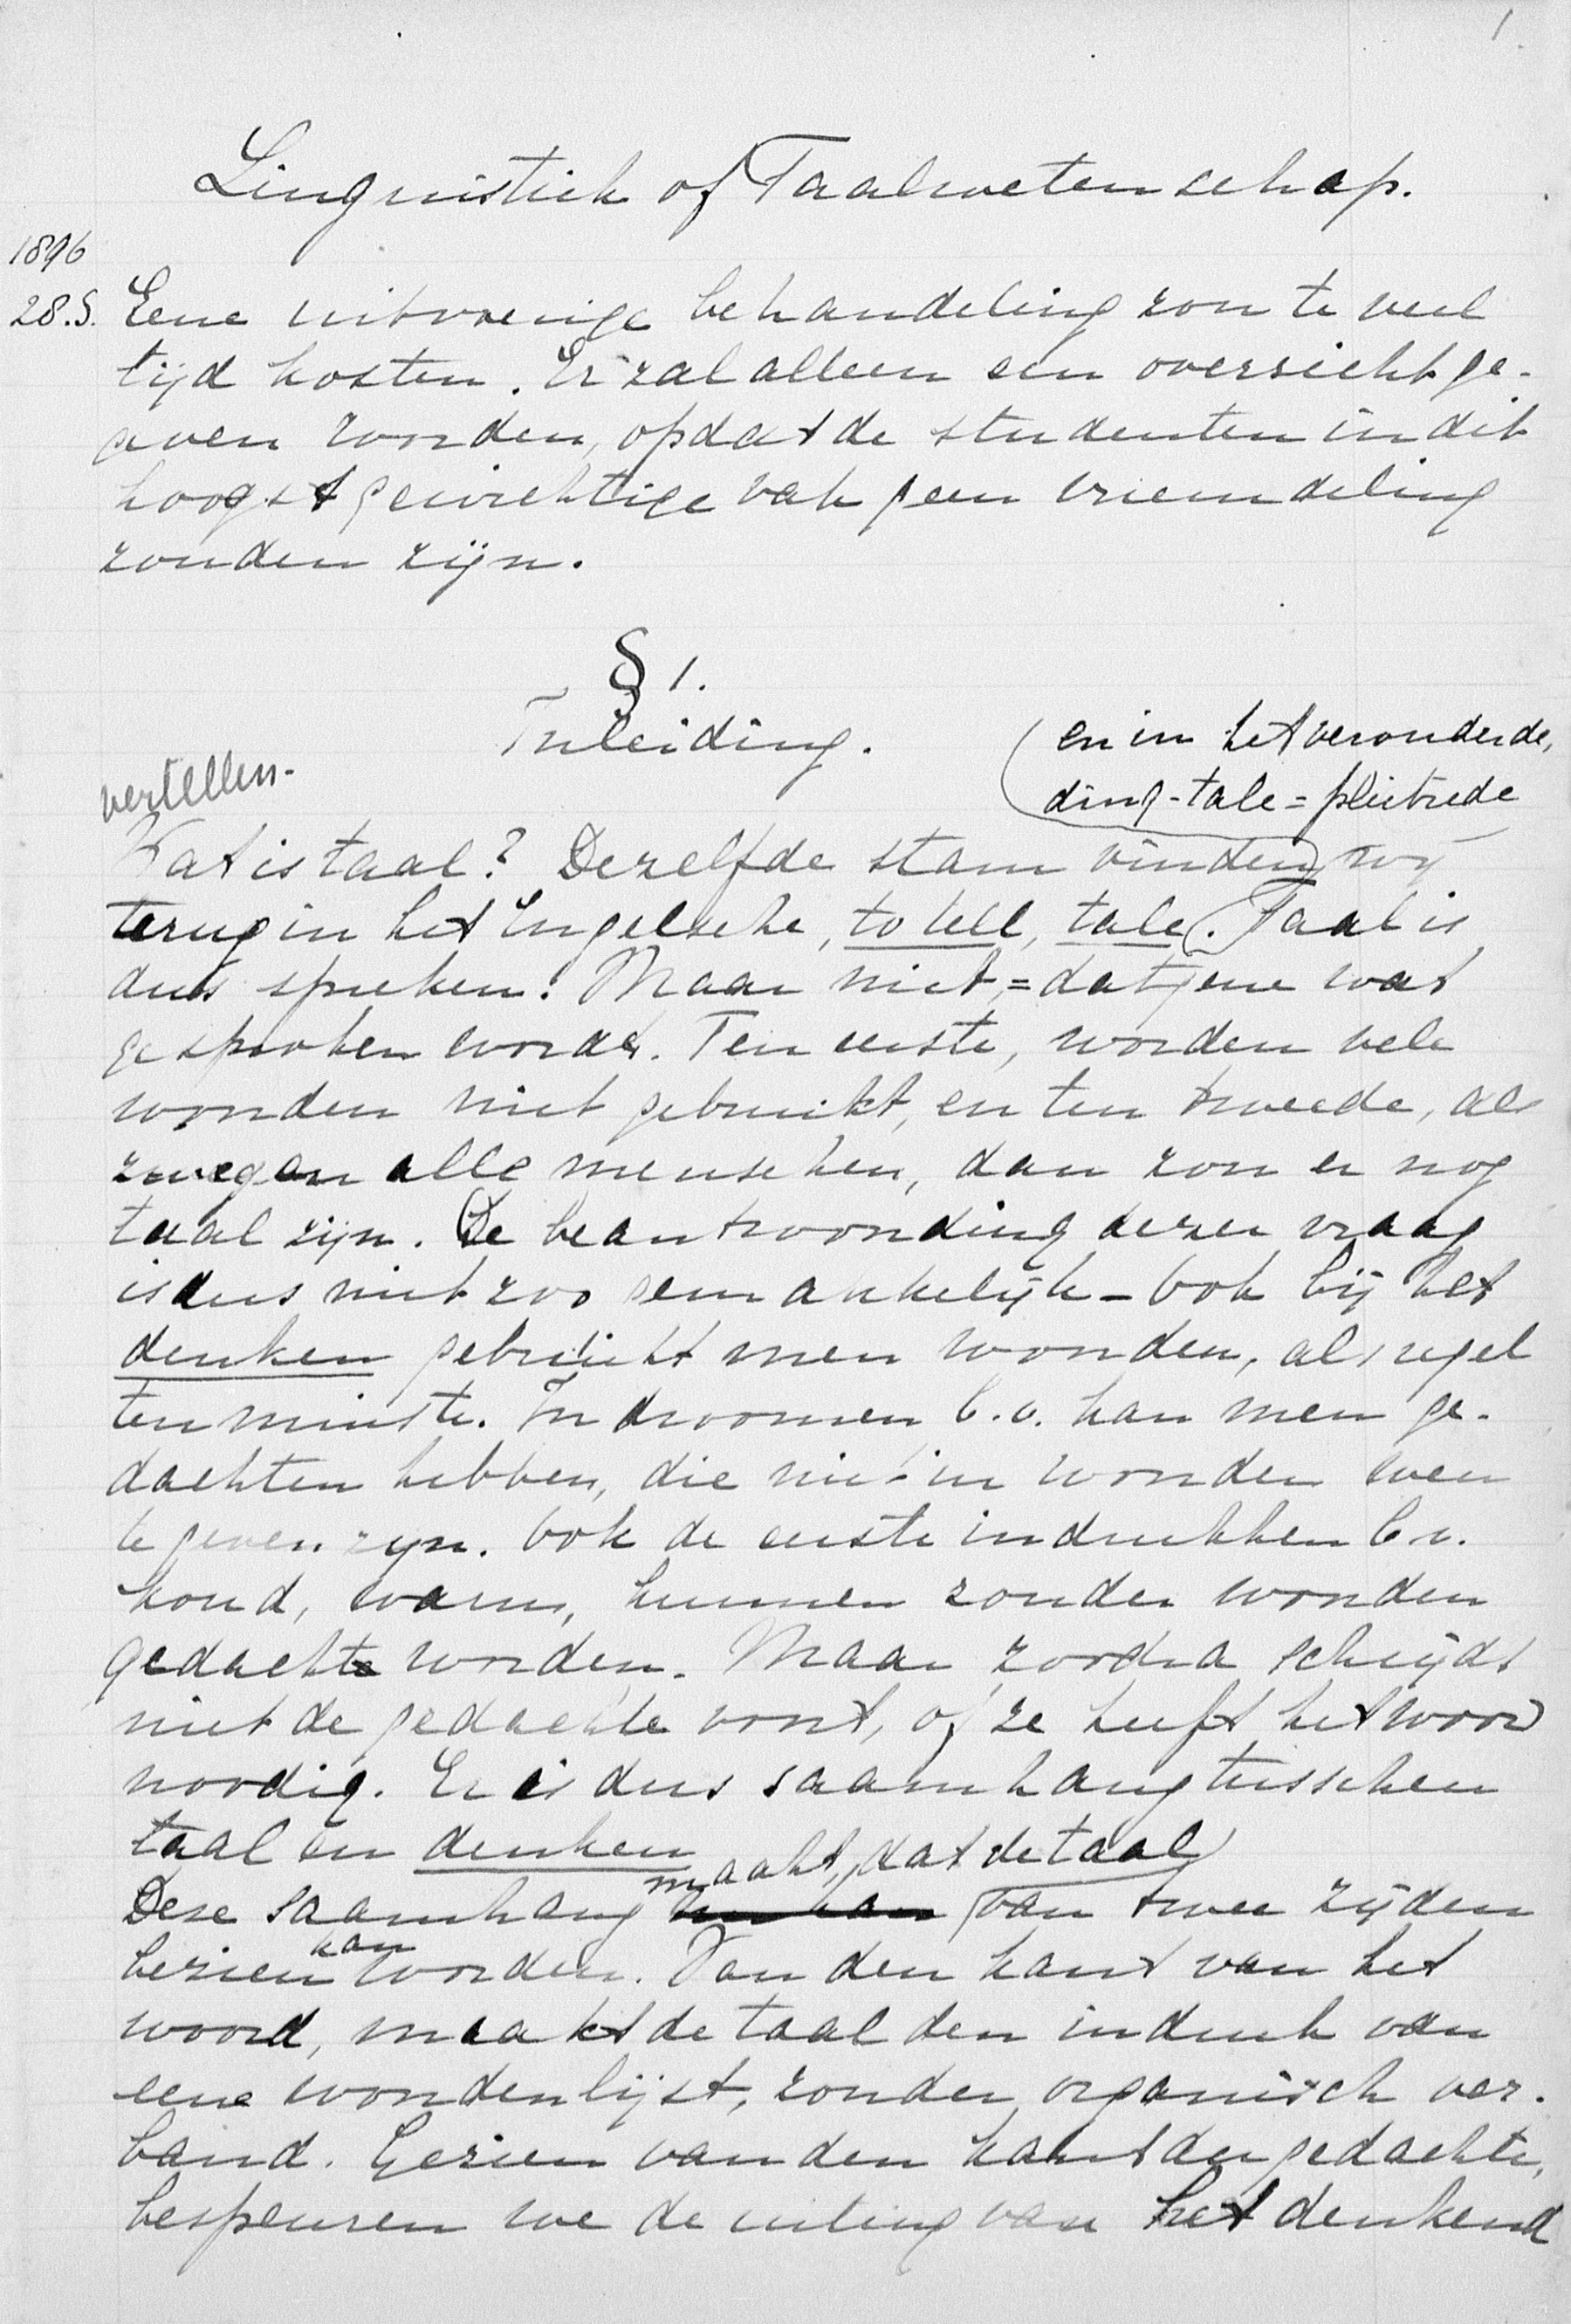 1
Linguistiek of Taalwetenschap.
1896
28.S. Eene uitvoerige behandeling zou te veel
tijd kosten. Er zal alleen een overzicht ge-
geven worden, opdat de studenten in dit
hoogst gewichtige vak geen vreemdeling
zouden zijn.
§ 1.
Inleiding.
(en in het verouderde,
ding-tale = pleitrede
vertellen-
Wat is taal? Dezelfde stam vinden wij
terug in het Engelsche, to tell, tale. Taal is
dus spreken. Maar niet, = datgene wat
gesproken wordt. Ten eerste, worden vele
woorden niet gebruikt, en ten tweede, al
zwegen alle menschen, dan zou er nog
taal zijn. De beantwoording dezer vraag
is dus niet zoo gemakkelijk - Ook bij het
denken gebruikt men woorden, als regel
ten minste. In droomen b.v. kan men ge-
dachten hebben, die niet in woorden weer
te geven zijn. Ook de eerste indrukken b.v.
koud, warm, kunnen zonder woorden
gedacht worden. Maar zoodra schrijdt
niet de gedachte voort, of ze heeft het woord
noodig. Er is dus saamhang tusschen
taal en denken
maakt, dat de taal
Deze saamhang van twee zijden
kan
bezien worden. Van den kant van het
woord, maakt de taal den indruk van
eene woordenlijst, zonder organisch ver-
band. Gezien van den kant der gedachte,
bespeuren we de uiting van het denkend